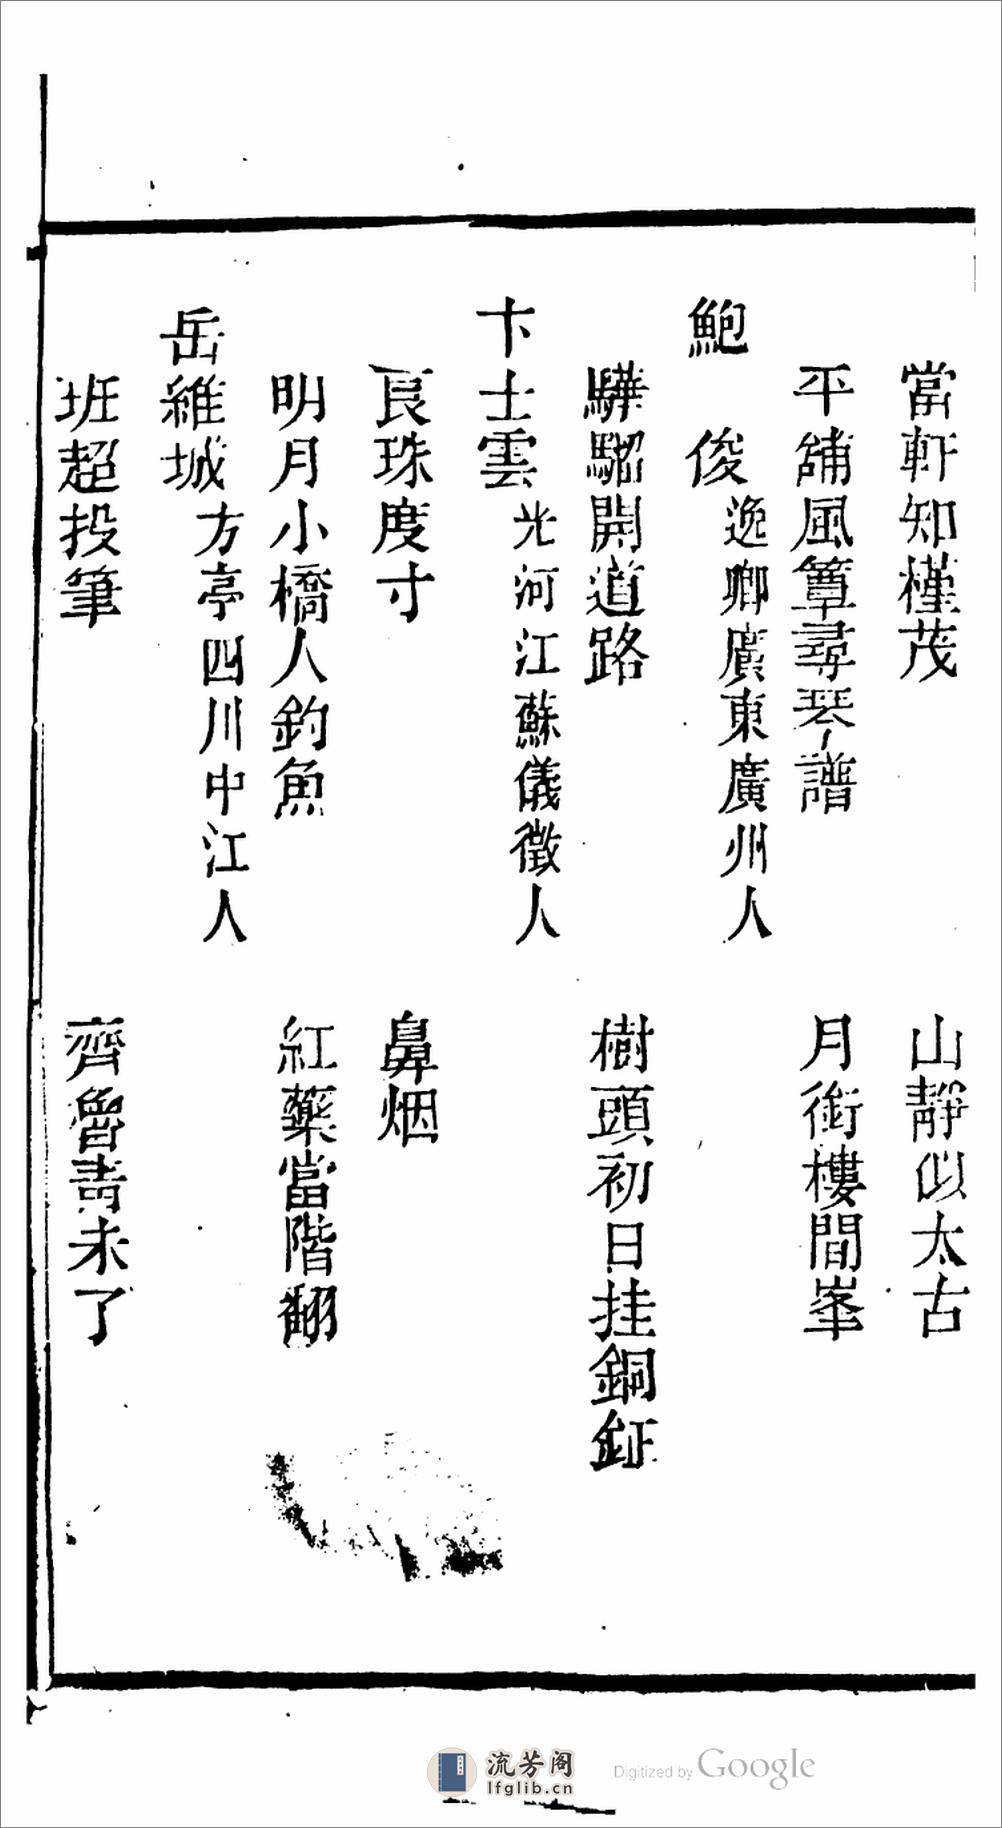 當軒知槿茂　山靜似太古
平鋪風簟尋琴譜　月銜樓間峯
鮑　俊逸卿廣東廣州人
驊騮開道路　樹頭初日挂銅鉦
卞士雲光河江蘇儀徵人
良珠度寸　鼻烟
明月小橋人釣魚　紅藥當階翻
岳維城方亭四川中江人
班超投筆　齊魯靑未了
流芳阁
lfglib.cn
Digitized by Google